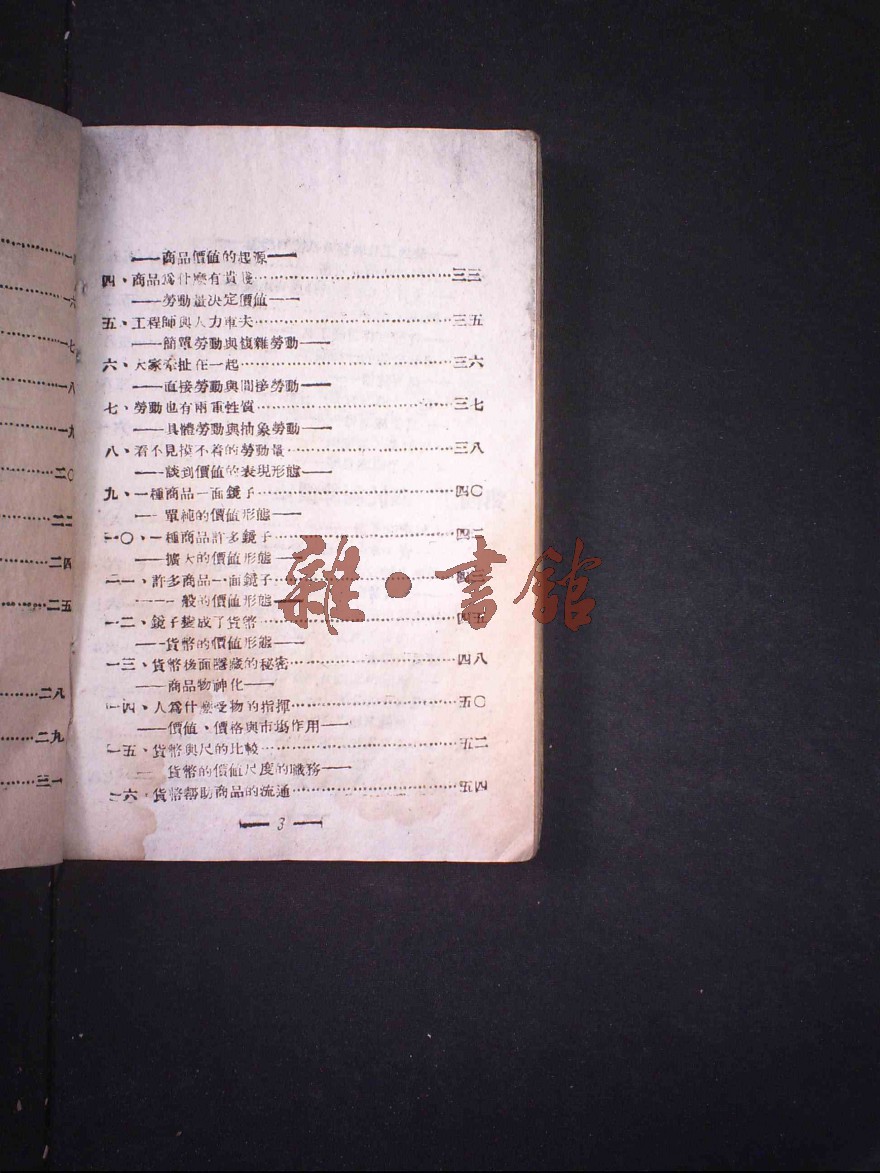 一八
一九
二〇
二二
二四
二五
二八
二九
三一
——商品價値的起源——
四、商品爲什麽有貴賤……三三
——勞動量決定價値——
五、工程師與人力車夫……三五
——簡單勞動與複雜勞動——
六、大家牽扯在一起……三六
——直接勞動與間接勞動——
七、勞動也有兩重性質……三七
——具體勞動與抽象勞動——
八、看不見摸不着的勞動量……三八
——談到價値的表現形態——
九、一種商品一面鏡子……四〇
——單純的價値形態——
一〇、一種商品許多鏡子……四二
——擴大的價値形態——
一一、許多商品一面鏡子……四三
——一般的價値形態——
一二、鏡子變成了貨幣……四五
——貨幣的價値形態——
一三、貨幣後面隱藏的秘密……四八
——商品物神化——
一四、人爲什麽受物的指揮……五〇
——價値、價格與市場作用——
一五、貨幣與尺的比較……五二
——貨幣的價値尺度的職務——
一六、貨幣幫助商品的流通……五四
—— 3 ——
雜·書館